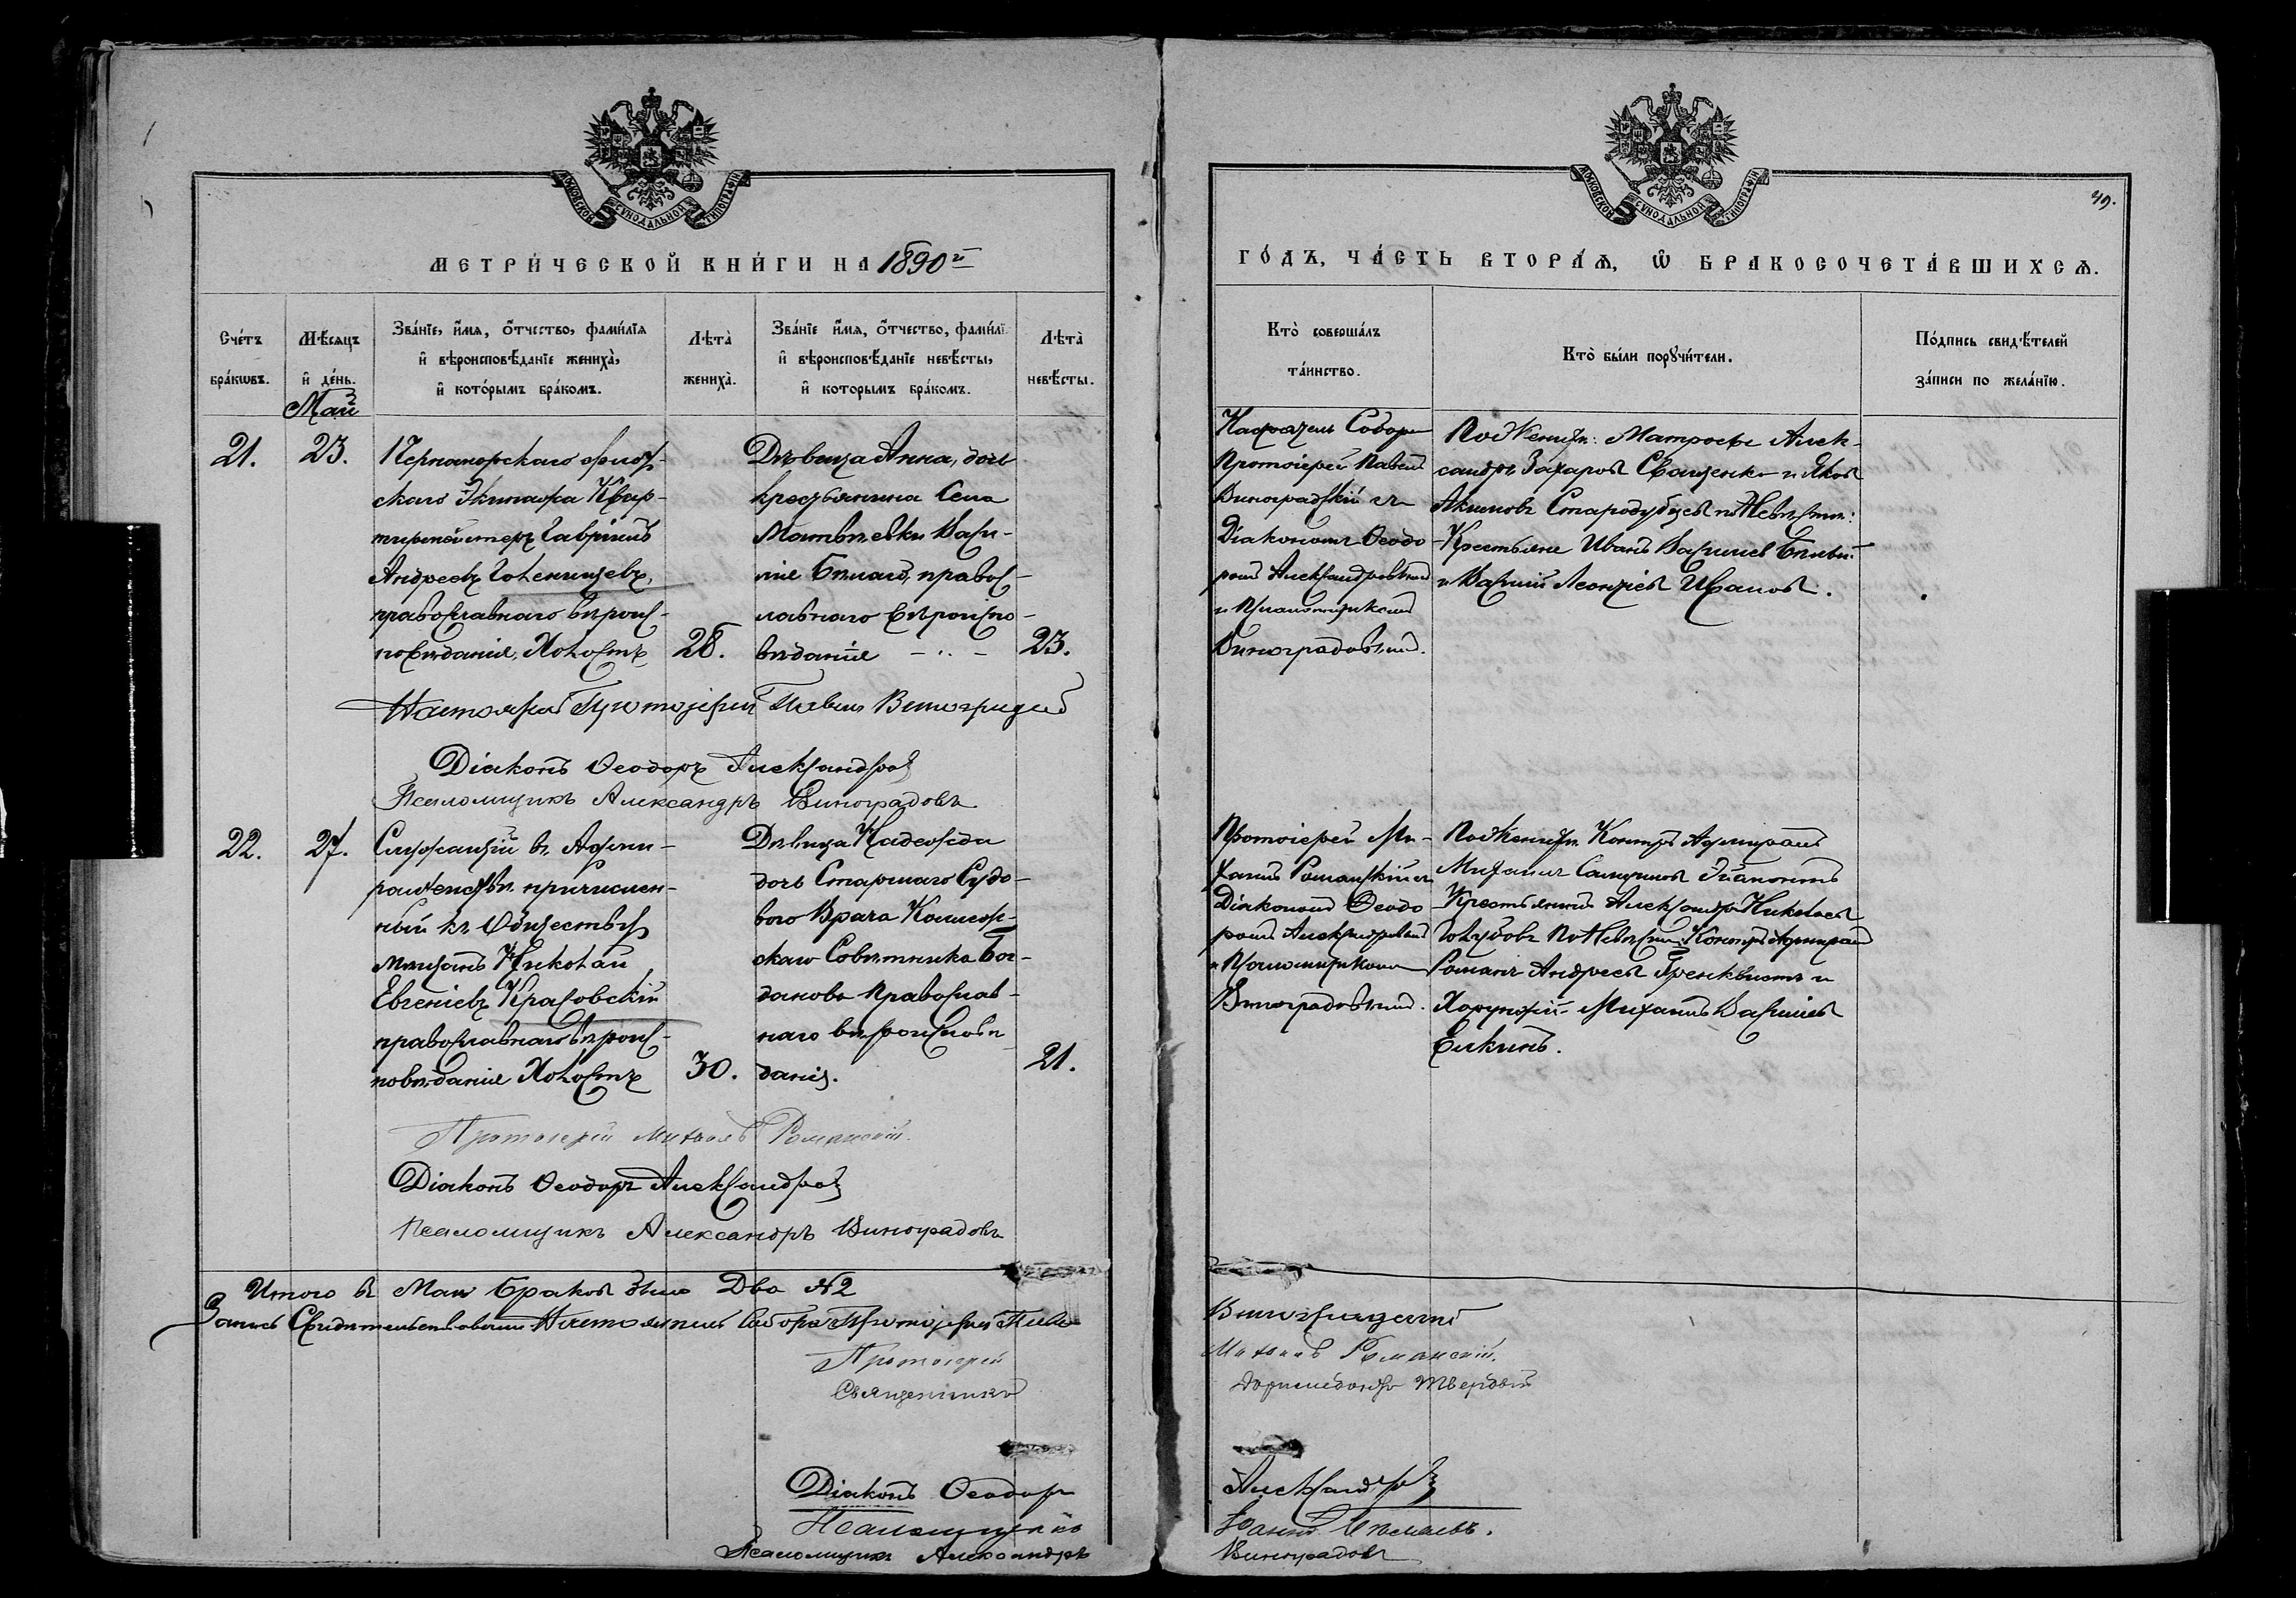 МОСКОВСКОЙ СѴНОДАЛЬНОЙ ТИПОГРАФІИ
МЕТРИ́ЧЕСКОЙ КНИ́ГИ НА 1890й
Сче́тъ бра́кѡвъ.
Мѣ́сяцъ и҆ де́нь.
Зва́нїе, и҆́мѧ, ѻ҆́тчество, фами́лїѧ
и҆ вѣроисповѣ́данїе жениха̀,
и҆ кото́рымъ бра́комъ.
Лѣта̀ жениха̀.
Зва́нїе и҆́мѧ, ѻ҆́тчество, фами́лї
и҆ вѣроисповѣ́данїе невѣ́сты,
и҆ кото́рымъ бра́комъ.
Лѣта̀ невѣ́сты.
Май
21.
23.
Черноморскаго флот-
скаго Экипажа Квар-
тирмейстеръ Гавріилъ
Андреевъ Голенищевъ,
православнаго вѣроис-
повѣданія, Холостъ
28.
Дѣвица Анна, дочь
крестьянина Села
Матвѣевки Васи-
лія Бѣлаго, правос-
лавнаго вѣроиспо-
вѣданія
23.
Настоятель Протоіерей Павелъ Виноградовъ
Діаконъ Ѳеодоръ Александровъ
Псаломщикъ Александръ Виноградовъ
22.
27.
Служащій въ Адми-
ралтействѣ причислен-
ный къ Обществу
мѣщанъ Николай
Евгеніевъ Красовскій
православнаго вѣроис-
повѣданія Холостъ
30.
Дѣвица Надежда
дочь Старшаго Судо-
вого Врача Коллеж-
скаго Совѣтника Бог-
данова Православ-
наго вѣроисповѣ
данія.
21.
Протоіерей Михаилъ Романскій.
Діаконъ Ѳеодоръ Александровъ
Псаломщикъ Александръ Виноградовъ
Итого въ Маѣ браковъ было Два №2
Запись Свидѣтельствовали Настоятель Собора Протоіерей Павелъ
Протоіерей
Священникъ
Діаконъ Ѳеодоръ
Псаломщикъ
Псаломщикъ Александръ
МОСКОВСКОЙ СѴНОДАЛЬНОЙ ТИПОГРАФІИ
49.
ГО́ДЪ, ЧА́СТЬ ВТОРА́Ѧ, Ѽ БРАКОСОЧЕТА́ВШИХСѦ.
Кто̀ соверша́лъ
та́инство.
Кто̀ бы́ли порꙋчи́тели.
По́дпись свидѣ́телей
за́писи по жела́нїю.
Настоятель Собора
Протоіерей Павелъ
Виноградскій съ
Діакономъ Ѳеодо-
ромъ Александровымъ
и Псаломщикомъ
Виноградовымъ.
По Женихѣ: Матросы Алек-
сандръ Захаровъ Сващенко и Яковъ
Акимовъ Стародубцевъ по Невѣстѣ:
Крестьяне Иванъ Васильевъ Бѣлый
и Василій Леонтіевъ Ивановъ.
Протоіерей Ми-
хаилъ Романскій съ
Діакономъ Ѳеодо
ромъ Александровымъ
и Псаломщикомъ
Виноградовымъ.
По Женихѣ Контръ Адмиралъ
Михаилъ
Крестьянинъ Александръ Николаевъ
Голубовъ По Невѣстѣ: Контръ Адмиралъ
Романъ Андреевъ Гренквистъ и
Хорунжій Михаилъ Васильевъ
Елкинъ.
Михаилъ Романскій.
Александровъ
Іоаннъ
Виноградовъ